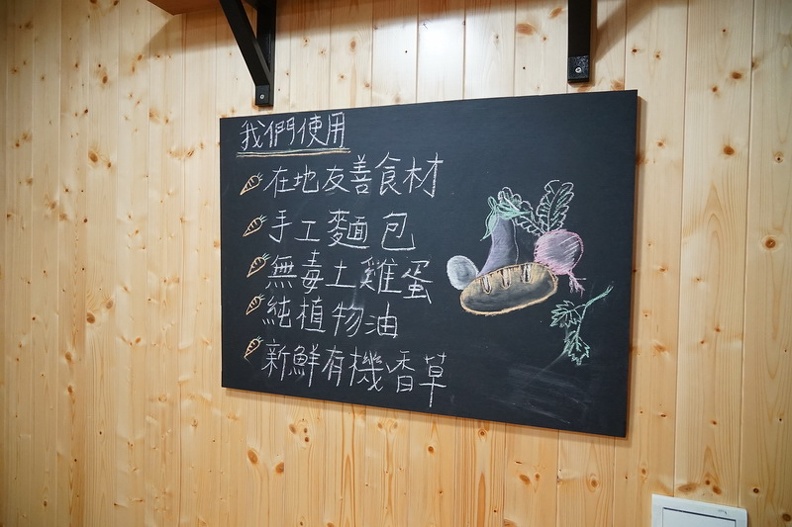 我們使用
在地友善食材
手工麵包
無毒土雞蛋
純植物油
新鮮有機香草